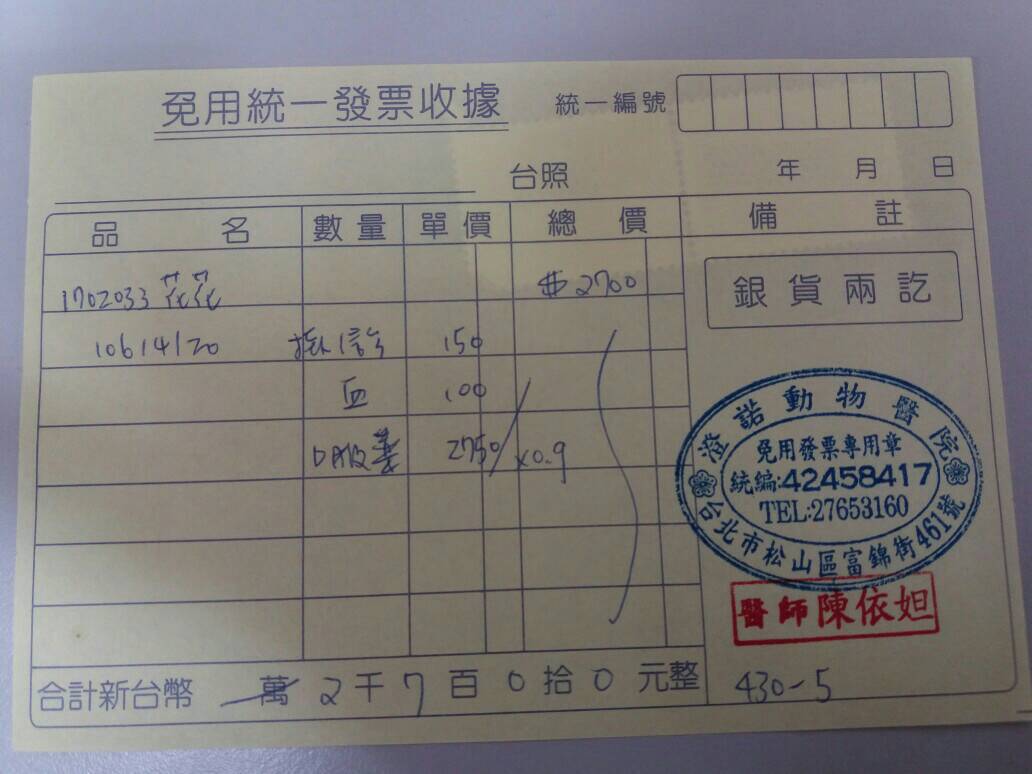 免用統一發票收據 統一編號
台照 年 月 日
品名 數量 單價 總價 備註
1702033 花花 #2700
銀貨兩訖
10614120 掛信診 150
血 100
2750 ×0.9
澄諾動物醫院
免用發票專用章
統編:42458417
TEL:27653160
台北市松山區富錦街461號
醫師陳依妲
合計新台幣 萬 2千 7百 0拾 0元整
430-5